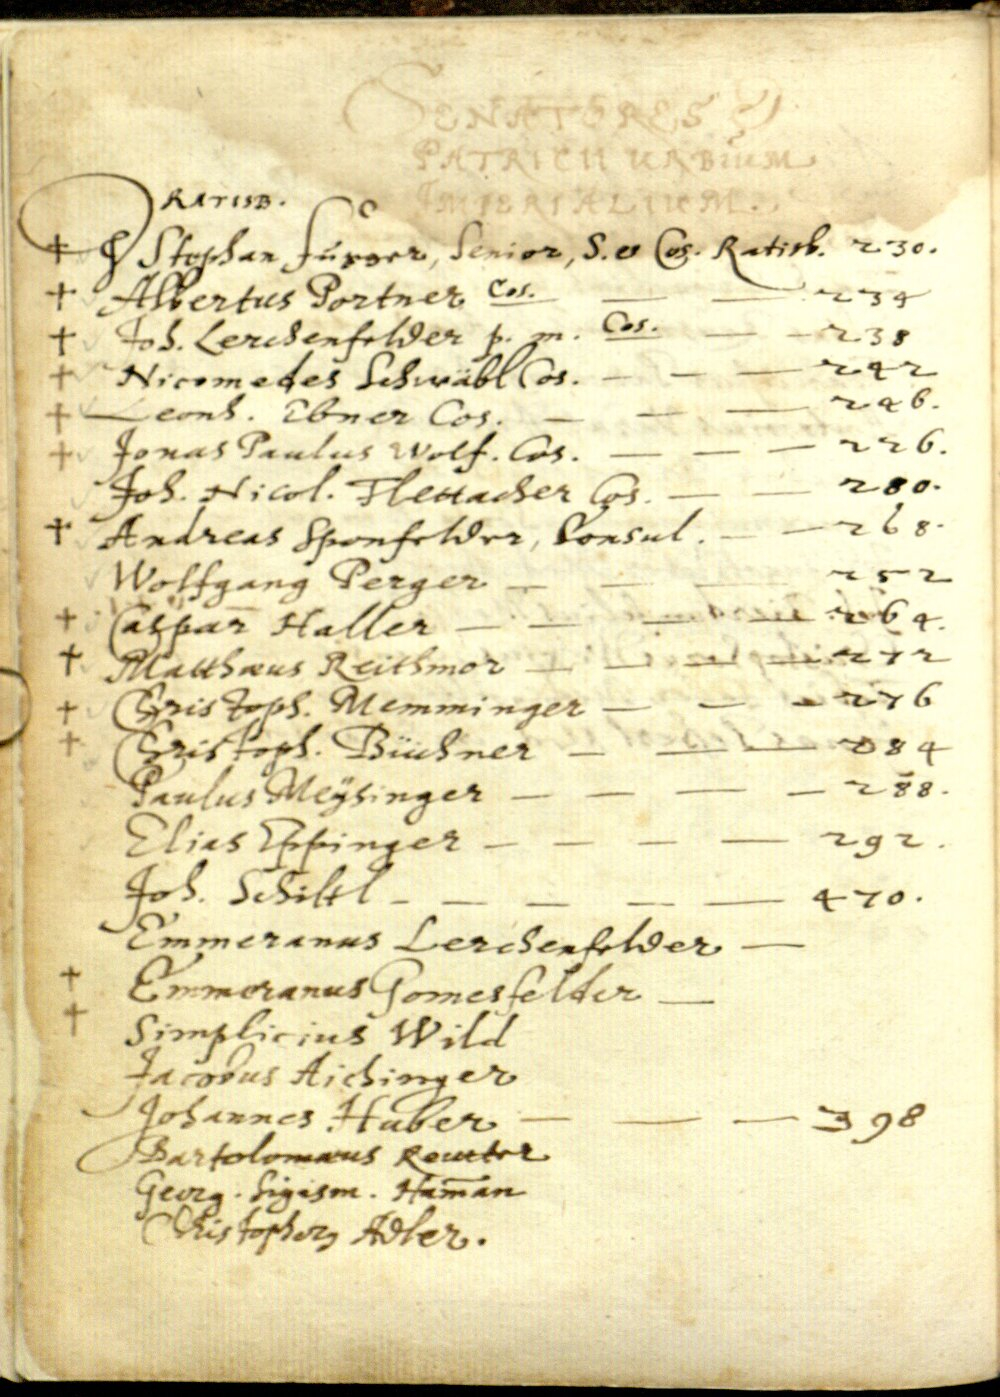 SENATORES
PATRICII URBIUM
IMPERIALIUM.
RATISB.
† Stephan Fugger, Senior, S. et Cos. Ratisb. 230.
† Albertus Portner Cos. — — 234
† Joh. Lerchenfelder p. m. Cos. — — 238
† Nicomedes Schwäbl Cos. — — — 242
† Leonh. Ebner Cos. — — — 246.
† Jonas Paulus Wolf. Cos. — — — 226.
Joh. Nicol. Flettacher Cos. — — 280.
† Andreas Sponfelder, Consul. — — 268.
Wolfgang Perger — — — 252
† Caspar Haller — — — — 264.
† Matthæus Reithmor — — — — 272
† Christoph. Memminger — — — 276
† Christoph. Büchner — — — 284
Paulus Meÿsinger — — — — 288.
Elias Eppinger — — — — 292.
Joh. Schiltl — — — — — 470.
Emmeranus Lerchenfelder —
† Emmeranus Gomesfelder —
† Simplicius Wild
Jacobus Aichinger
Johannes Huber — — — 398
Bartolomæus Reutter
Georg. Sigism. Ham̄an
Christophorus Adler.